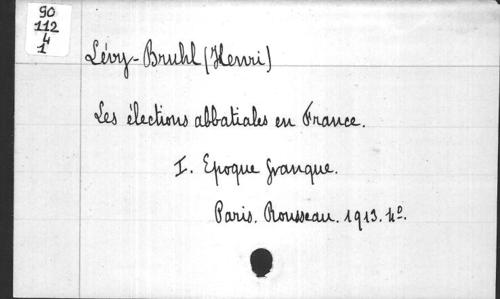 90
112
4
1
Lévy-Bruhl (Henri)
Les élections abbatiales en France.
I. Epoque franque.
Paris. Rousseau. 1913. 4o.